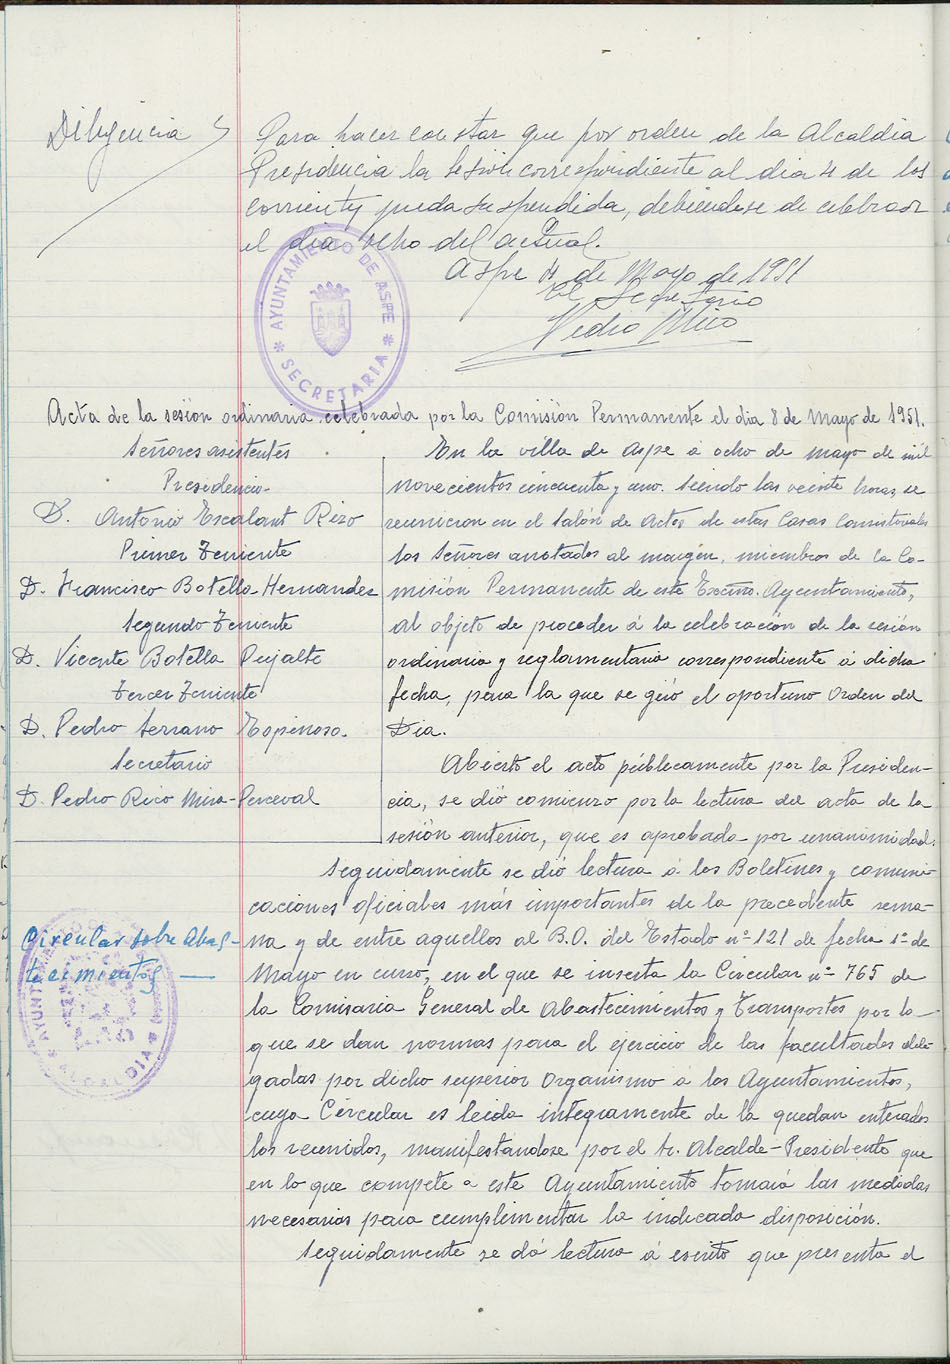 Diligencia
Para hacer constar que por orden de la Alcaldia
Presidencia la sesión correspondiente al dia 4 de los
corrientes queda suspendida, debiendose de celebrar
el dia ocho del actual.
Aspe 4 de Mayo de 1951
El Secretario
Pedro Rico
AYUNTAMIENTO DE ASPE
* SECRETARIA *
Acta de la sesión ordinaria celebrada por la Comisión Permanente el dia 8 de Mayo de 1951.
Señores asistentes
Presidencia
D. Antonio Escalant Rizo
Primer Teniente
D. Francisco Botella Hernandez
Segundo Teniente
D. Vicente Botella Pujalte
Tercer Teniente
D. Pedro Serrano Espinosa.
Secretario
D. Pedro Rico Mira-Perceval
En la villa de Aspe a ocho de mayo de mil
novecientos cincuenta y uno. Siendo las veinte horas, se
reunieron en el Salón de Actos de estas Casas Consistoriales
los Señores anotados al margen, miembros de la Co-
misión Permanente de este Excmo. Ayuntamiento,
al objeto de proceder á la celebración de la sesión
ordinaria y reglamentaria correspondiente á dicha
fecha, para la que se giró el oportuno Orden del
Dia.
Abierto el acto públicamente por la Presiden-
cia, se dió comienzo por la lectura del acta de la
sesión anterior, que es aprobada por unanimidad.
Seguidamente se dió lectura á los Boletines y comuni-
caciones oficiales más importantes de la precedente sema-
na y de entre aquellos al B.O. del Estado nº 121 de fecha 1º de
Mayo en curso, en el que se inserta la Circular nº 765 de
la Comisaria General de Abastecimientos y Transportes por la
que se dan normas para el ejercicio de las facultades dele-
gadas por dicho superior Organismo á los Ayuntamientos,
cuya Circular es leida integramente de la quedan enterados
los reunidos, manifestandose por el Sr. Alcalde-Presidente que
en lo que compete a este Ayuntamiento tomará las medidas
necesarias para cumplimentar la indicada disposición.
Seguidamente se dá lectura á escrito que presenta el
Circular sobre Abas-
tecimientos
AYUNTAMIENTO DE
* ALCALDIA *